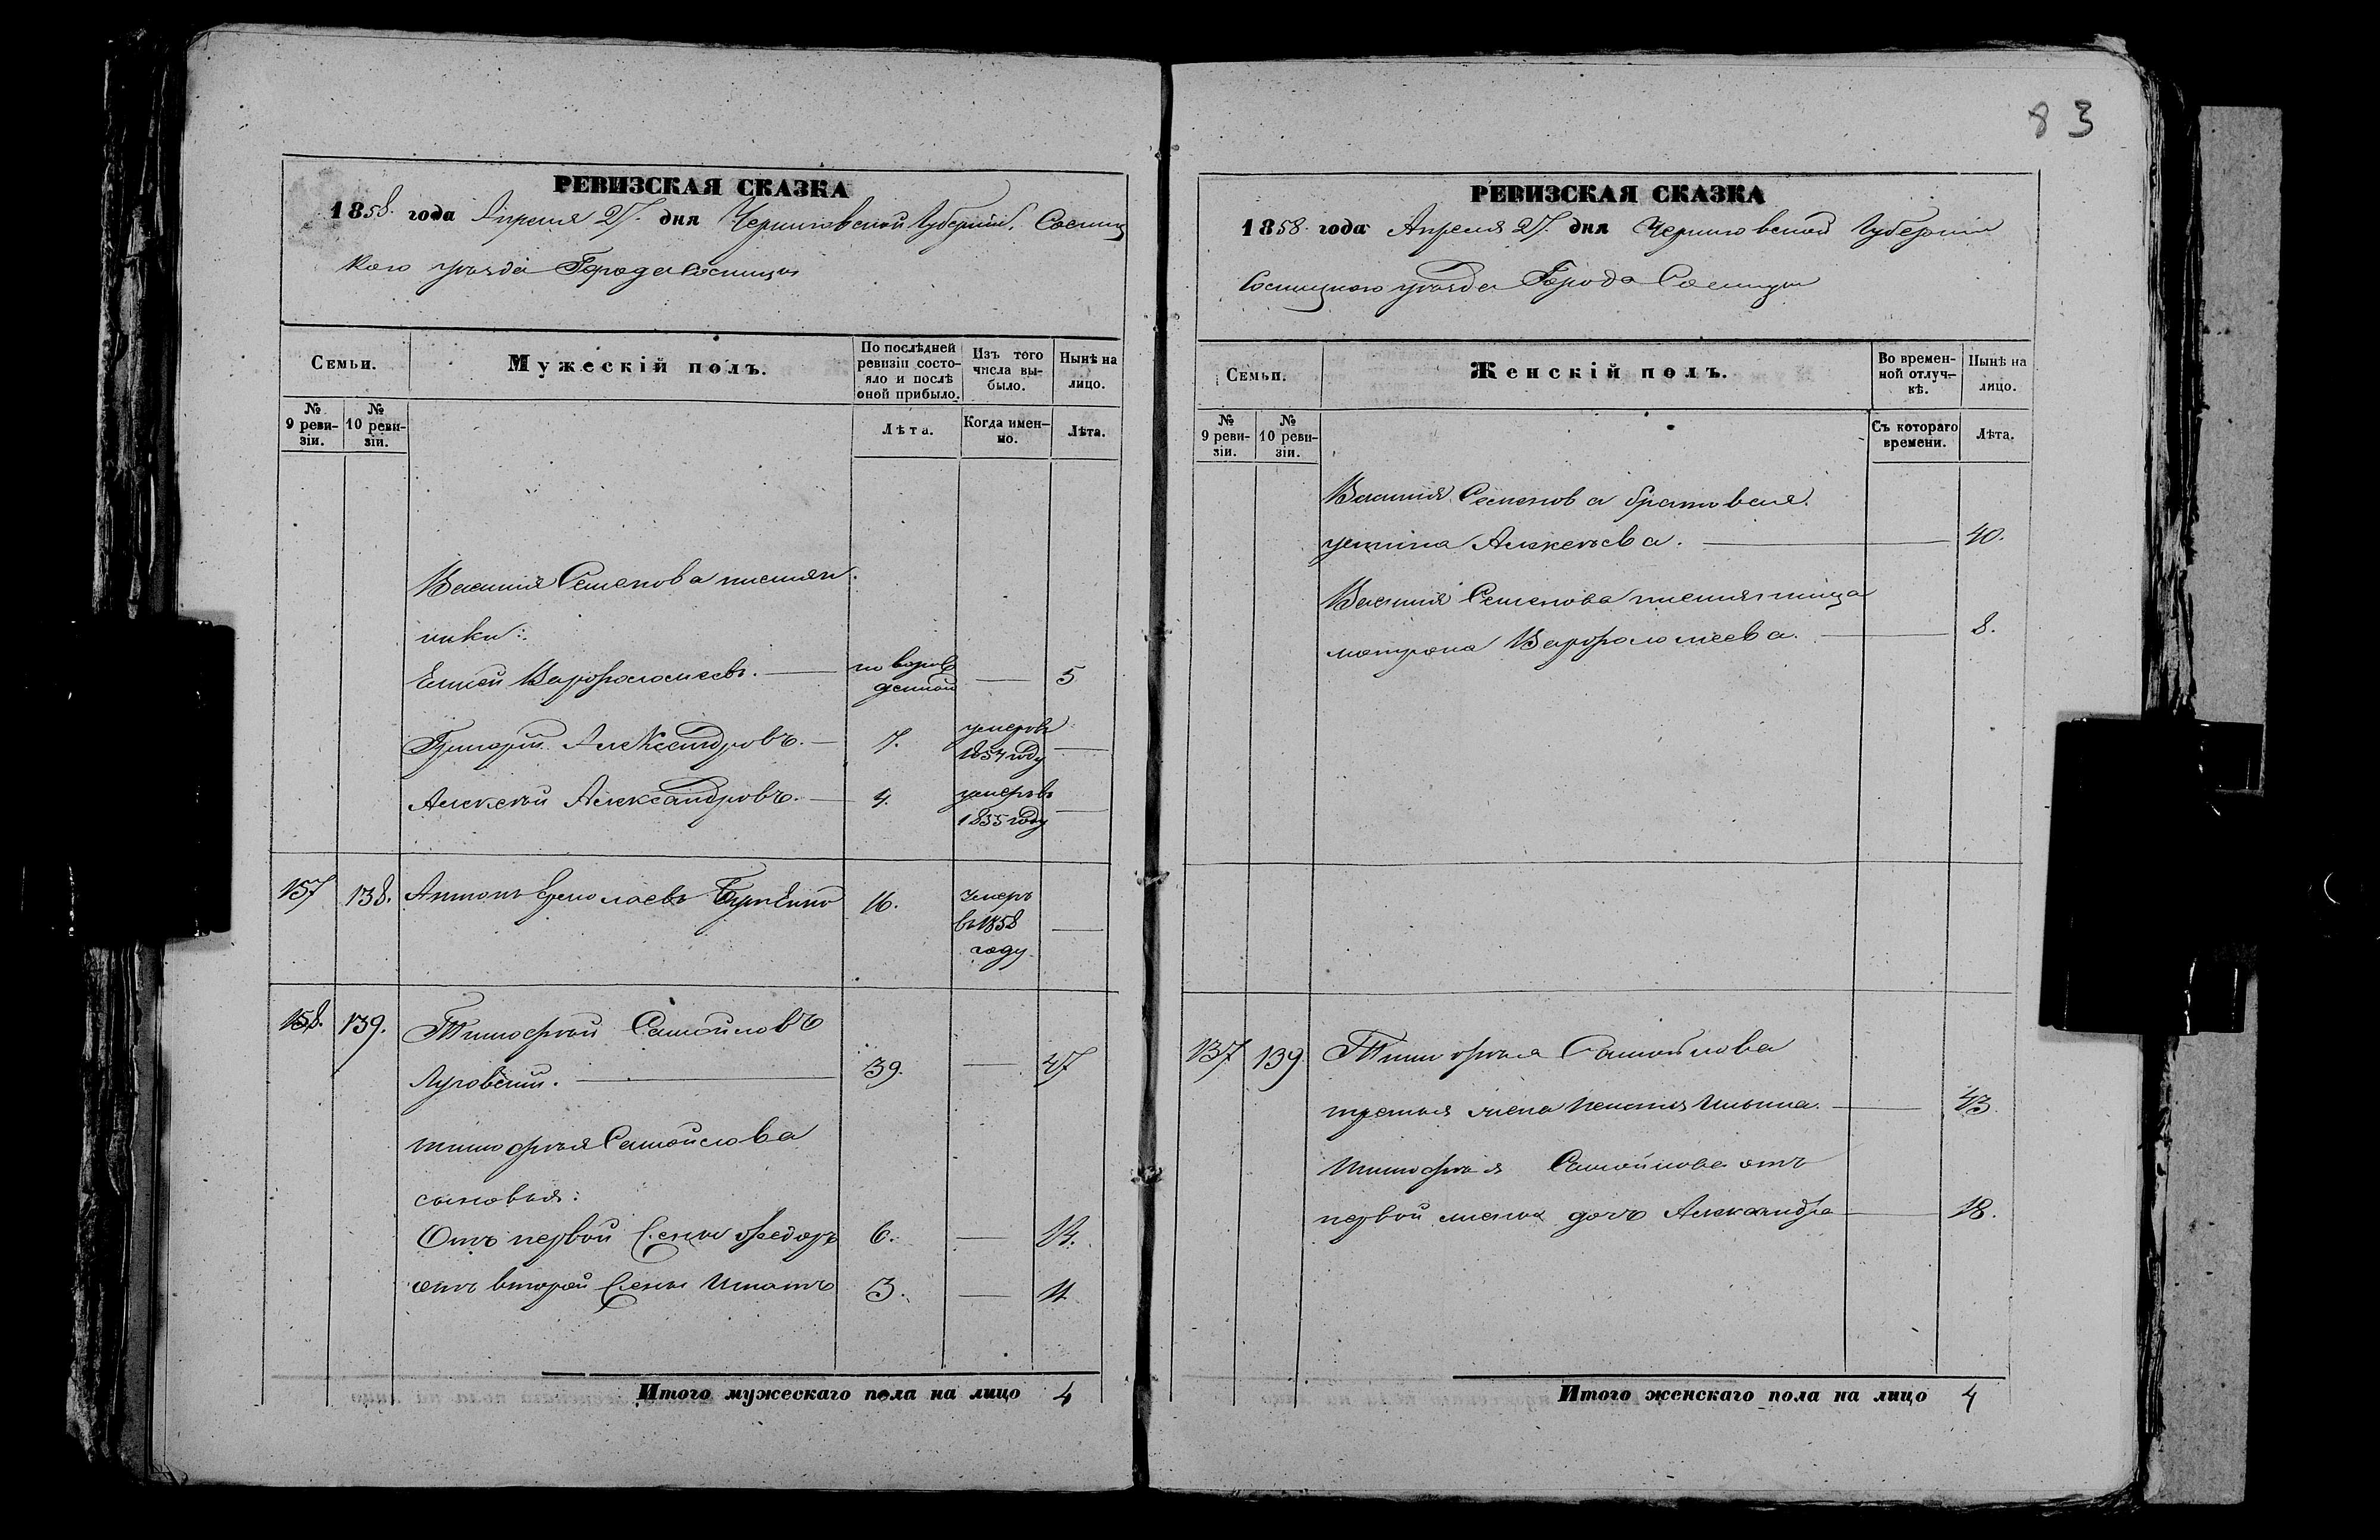 83
РЕВИЗСКАЯ СКАЗКА
1858. года Апреля 27. дня Черниговской Губернии, Сосниц
кого уѣзда Города Сосницы
Семьи.
Мужескій полъ.
По послѣдней ревизіи состояло и послѣ оной прибыло.
Изъ того числа выбыло.
Нынѣ на лицо.
№ 9 ревизіи.
№ 10 ревизіи.
Лѣта.
Когда именно.
Лѣта.
Василия Семенова племян
ники:
Варфоломеевъ. — новорож
денной — 5
Григорій Александровъ. — 7. умеръ въ
1854 году —
Алексѣй Александровъ. — 4. умеръ въ
1855 году —
157 138. Антонъ Ермолаевъ 16. умеръ
въ 1858 —
году
158. 139. Тимофѣй Самойловъ
Луговский. — 39. — 47
тимофѣя Самойлова
сыновья:
Отъ первой жены Федоръ 6. — 14.
отъ второй жены Игнатъ 3. — 11
Итого мужескаго пола на лицо 4
РЕВИЗСКАЯ СКАЗКА
1858. года Апреля 27. дня Черниговской Губернии
Сосницкого уѣзда Города Сосницы
Семьи.
Женскій полъ.
Во временной отлучкѣ.
Нынѣ на лицо.
№ 9 ревизіи.
№ 10 ревизіи.
Съ котораго времени.
Лѣта.
Василия Семенова братовая
устина Алексѣева. — 40.
Василия Семенова племянница
матрона Варфоломеева. — 8.
137 139 Тимофѣя Самойлова
третья жена Ильина. — 43.
тимофѣя Самойлова отъ
первой жены дочь Александра — 18.
Итого женскаго пола на лицо 4